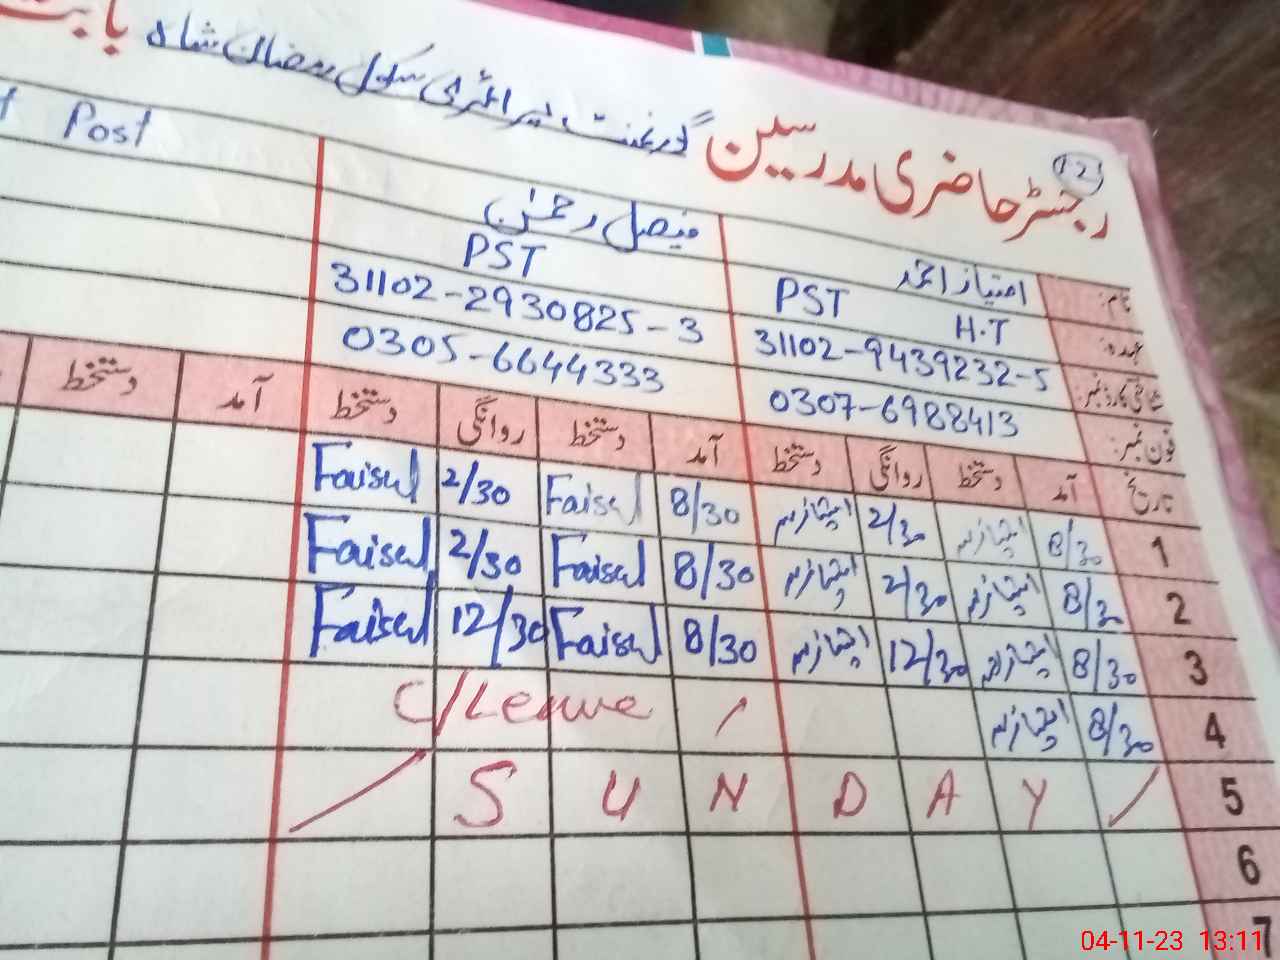 رجسٹر حاضری مدرسین گورنمنٹ پرائمری سکول رمضان شاہ بابت
12
نام: امتیاز احمد فیصل رحمٰن Post
عہدہ: PST H.T PST
شناختی کارڈ نمبر: 31102-9439232-5 31102-2930825-3
فون نمبر: 0307-6988413 0305-6644333
تاریخ آمد دستخط روانگی دستخط آمد دستخط روانگی دستخط آمد دستخط
1 8/30 امتیاز 2/30 امتیاز 8/30 Faisal 2/30 Faisal
2 8/30 امتیاز 2/30 امتیاز 8/30 Faisal 2/30 Faisal
3 8/30 امتیاز 12/30 امتیاز 8/30 Faisal 12/30 Faisal
4 8/30 امتیاز C/Leave
5 S U N D A Y
6
7
04-11-23 13:11